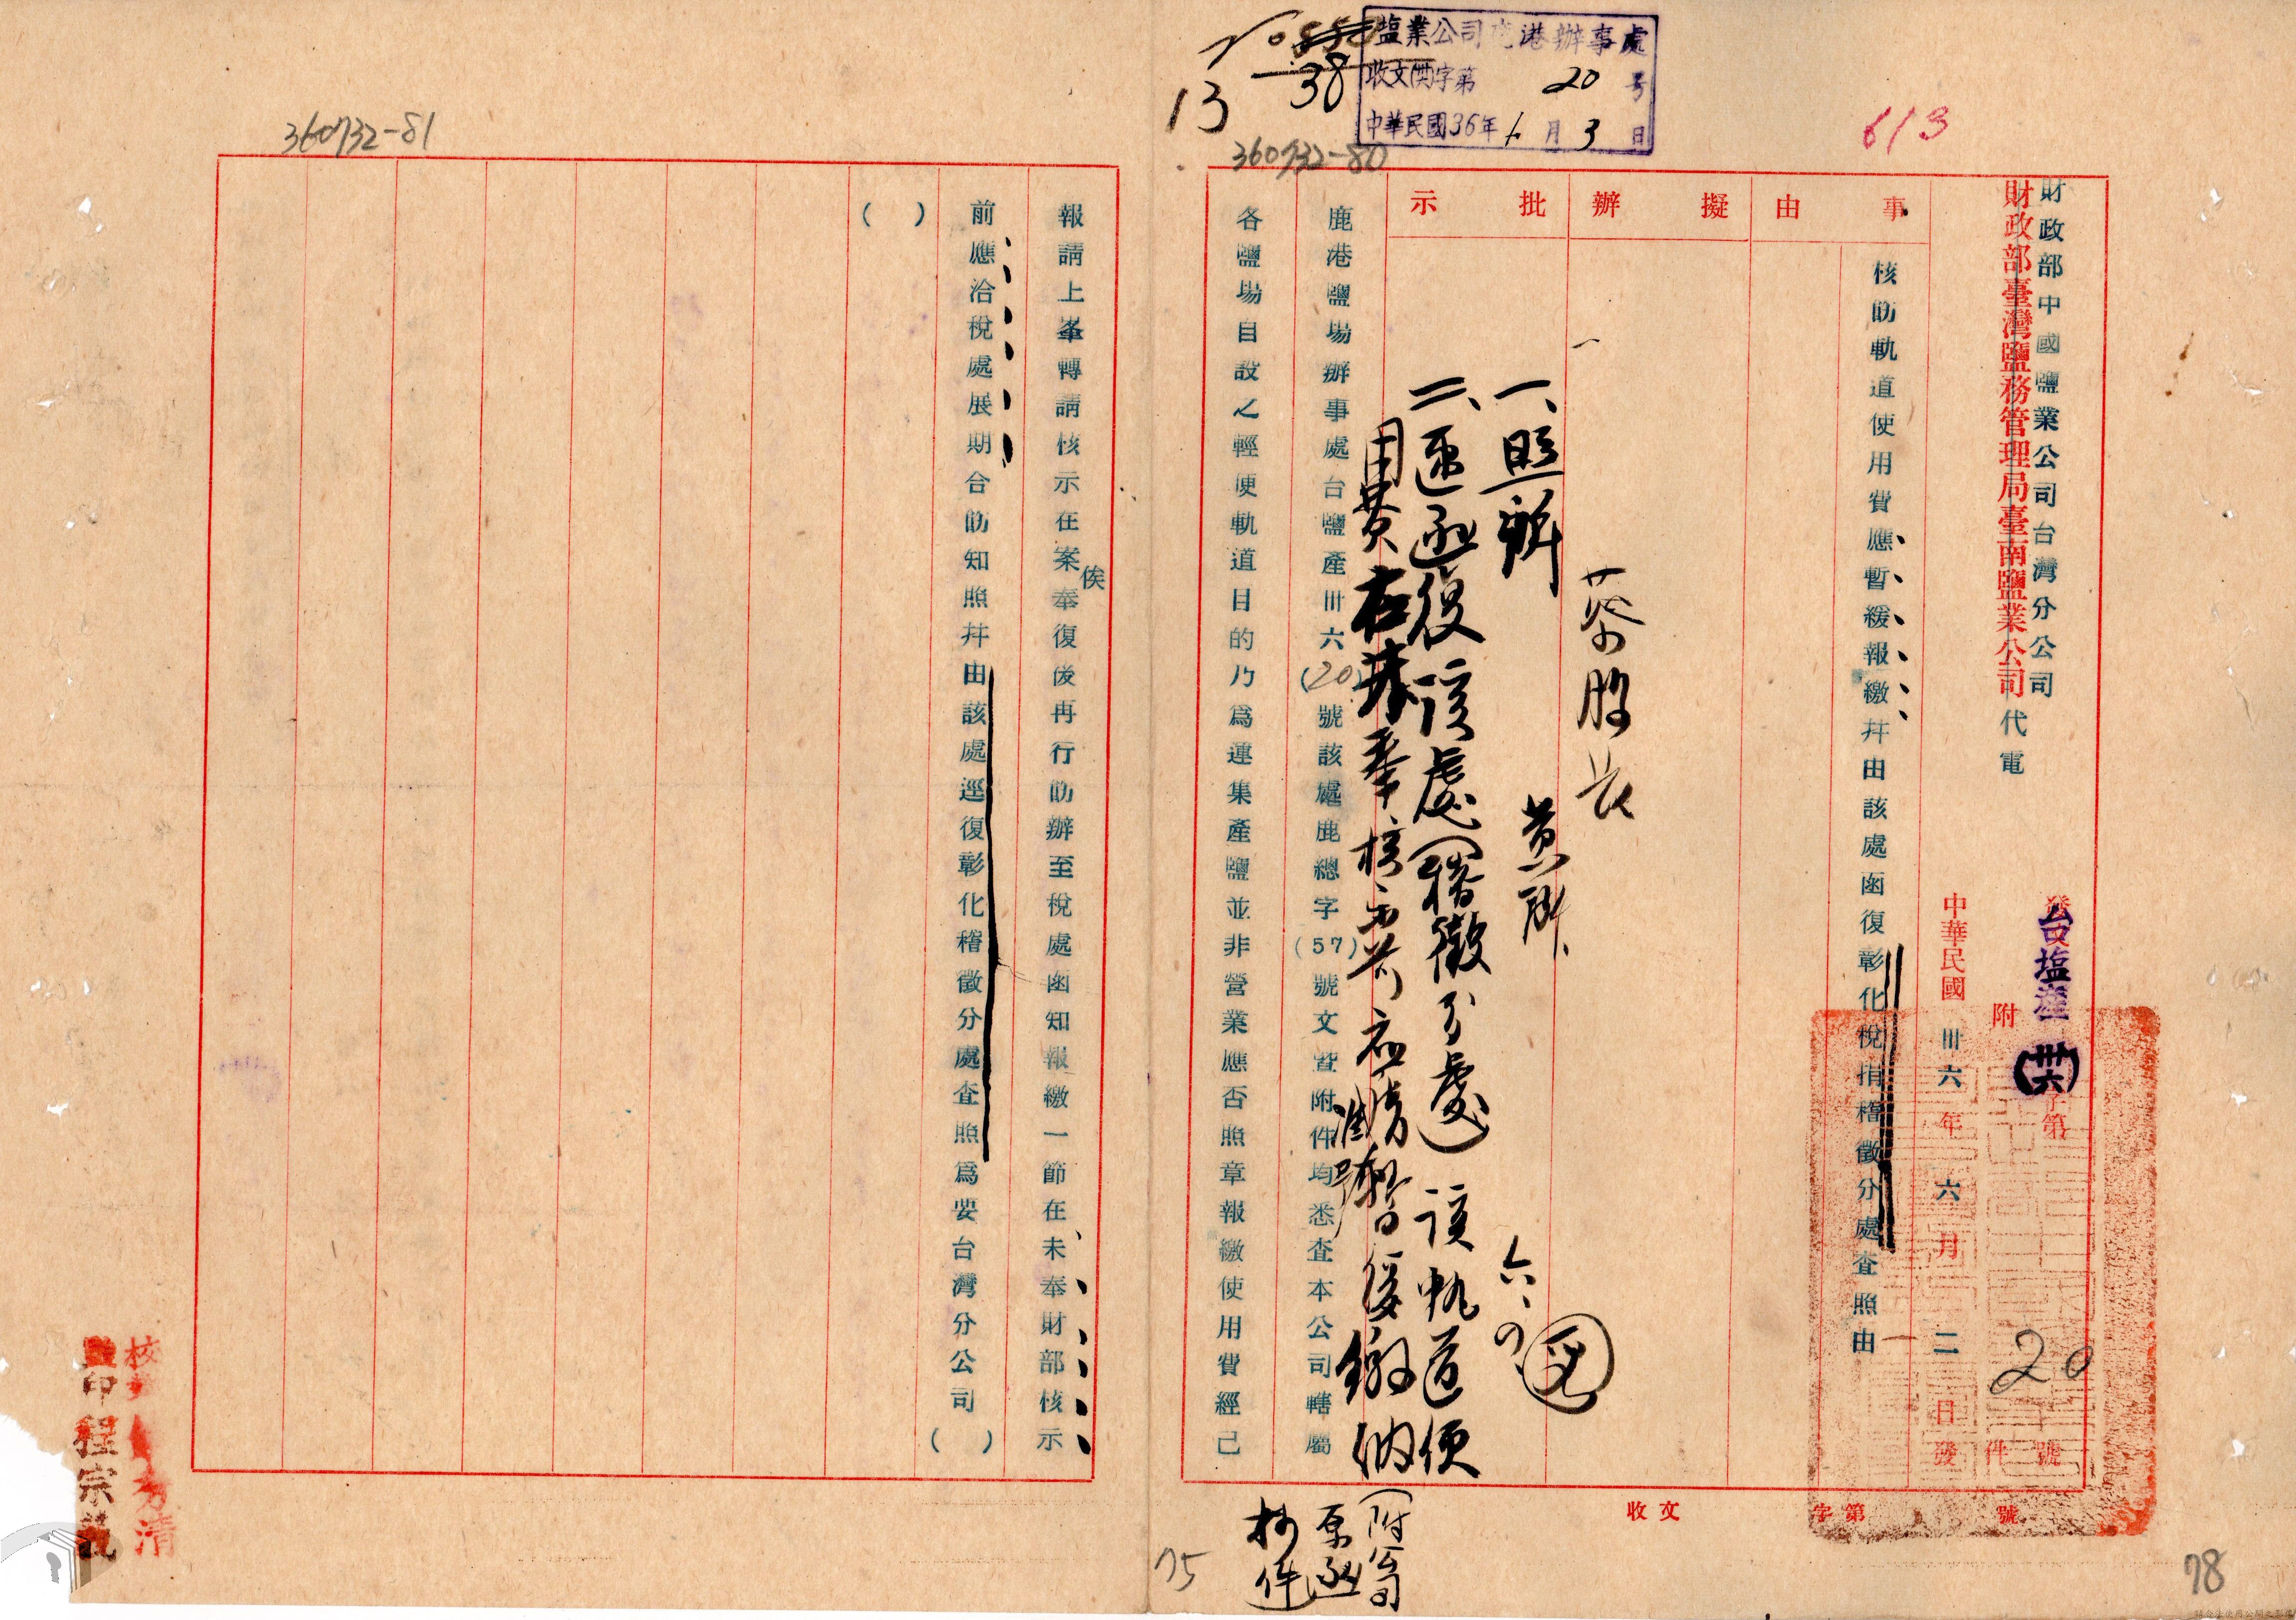 塩業公司鹿港辦事處
收文(卅)字第20号
中華民國36年6月3日
6/3
13
38
360732-80
財政部中國鹽業公司台灣分公司
財政部臺灣鹽務管理局臺南鹽業公司
代電
台塩產(卅六)字第20號
附件
中華民國卅六年六月二日發
事由
擬辦
批示
核飭軌道使用費應暫緩報繳幷由該處函復彰化稅捐稽徵分處査照由
蔡股長
一、照辦
二、速函復該處(稽徵分處)該軌道使
用費在未奉核示前應請暫緩繳納
(附公司
原函
抄件)
鹿港鹽場辦事處台鹽產卅六(20)號該處鹿總字(57)號文暨附件均悉查本公司轄屬
各鹽場自設之輕便軌道目的乃爲運集產鹽並非營業應否照章報繳使用費經已
收文 字第 號
75
78
360732-81
報請上峯轉請核示在案俟奉復後再行飭辦至稅處函知報繳一節在未奉財部核示
前應洽稅處展期合飭知照幷由該處逕復彰化稽徵分處査照爲要台灣分公司( )
( )
監印程宗
校對